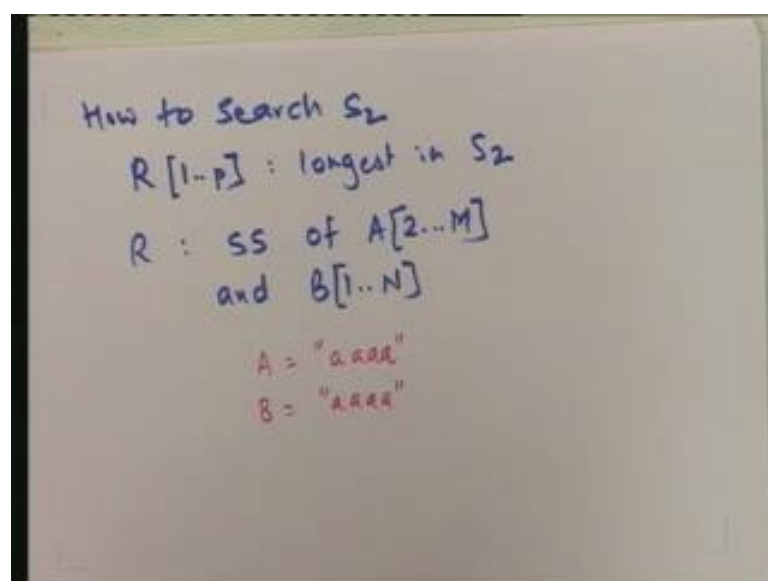 How to Search S2
R[1..p] : longest in S2
R : SS of A[2...M]
and B[1..N]
A = "aaaa"
B = "aaaa"